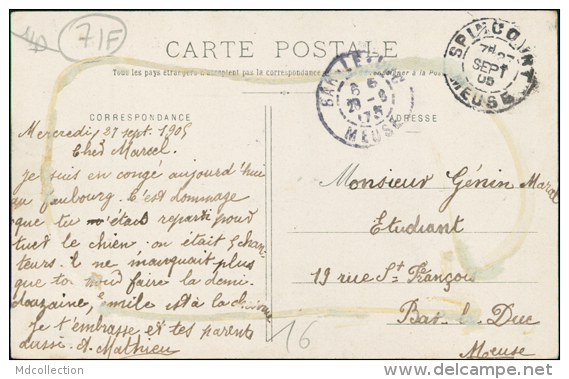 71F
CARTE POSTALE
Tous les pays étrangers n'acceptent pas la correspondance
CORRESPONDANCE
ADRESSE
SPINCOURT
SEPT
05
MEUSE
BAR-LE-DUC
MEUSE
Mercredi 27 sept. 1905
Cher Marcel
Je suis en congé aujourd'hui
au faubourg. C'est dommage
que tu étais reparti pour
tuer le chien. on était 5 chan
teurs. il ne manquait plus
que toi pour faire la demi
douzaine, émile est à la
Je t'embrasse et tes parents
aussi. A. Mathieu
Monsieur Génin Marcel
Etudiant
19 rue St François
Bar le Duc
Meuse
16
Mdcollection
http://www.delcampe.net